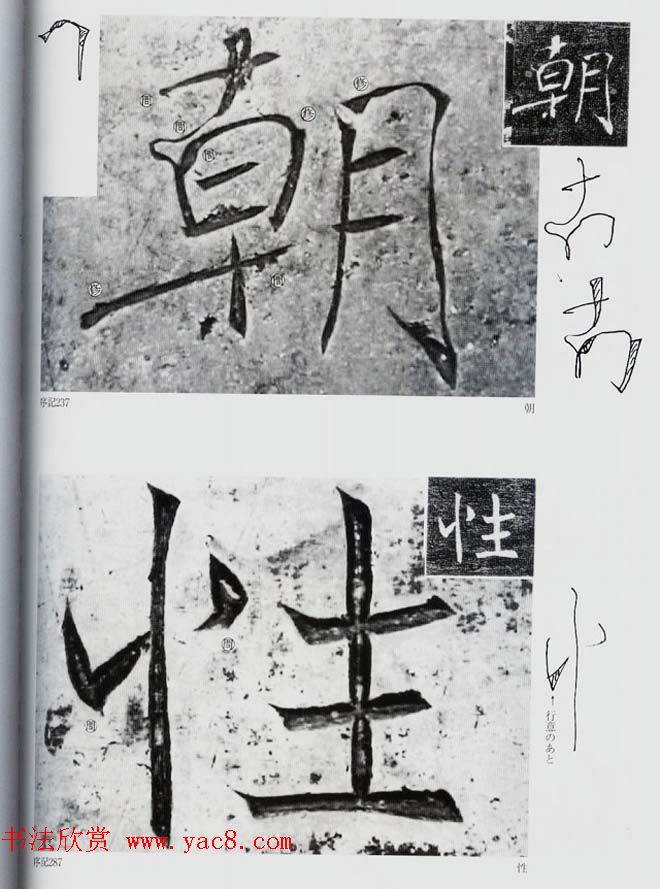 朝
朝
序記237
朝
性
性
↑行意のあと
书法欣赏 www.yac8.com
序記287
性